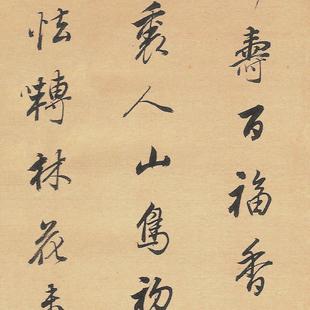 壽百福香
裏人山鳥初
怯囀林花未